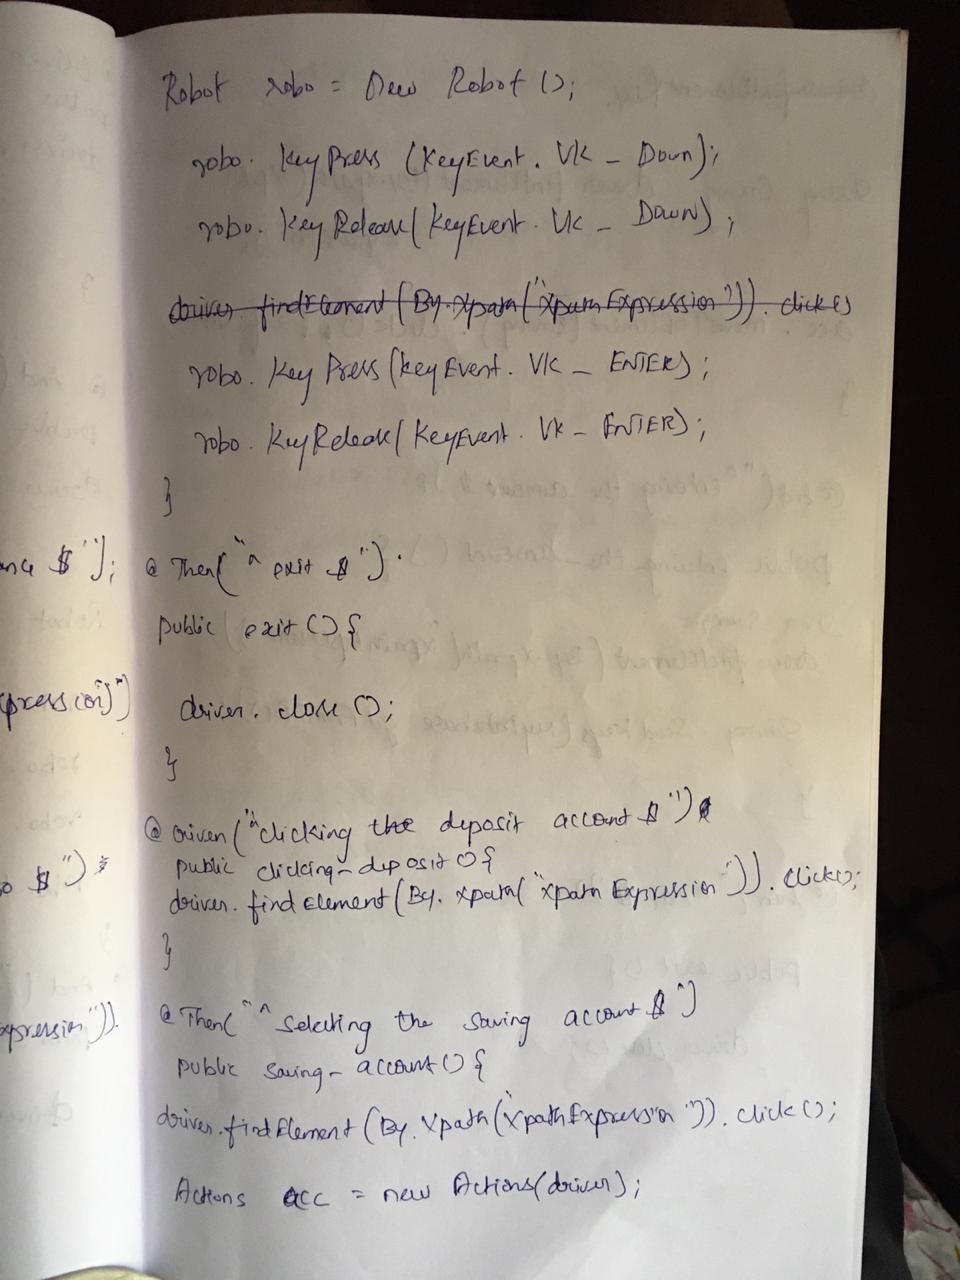 Robot robo = new Robot ();
robo. Key Press (KeyEvent. VK _ Down);
robo. Key Release( KeyEvent. VK _ Down) ;
driver. findElement (By. xpath("xpath Expression")). click()
robo. Key Press (key Event. VK _ ENTER) ;
robo. KeyRelease( KeyEvent. Vk _ ENTER) ;
}
$"); @ Then( "^ exit $").
public exit () {
driver. close ();
}
@ Given ("^clicking the deposit account $")
public clicking_deposit () {
$") driver. find Element (By. xpath( "xpath Expression")). click();
}
@ Then( "^ selecting the saving account $")
public saving_ account () {
driver. find Element (By. Xpath("xpath Expression")). click ();
Actions acc = new Actions(driver);